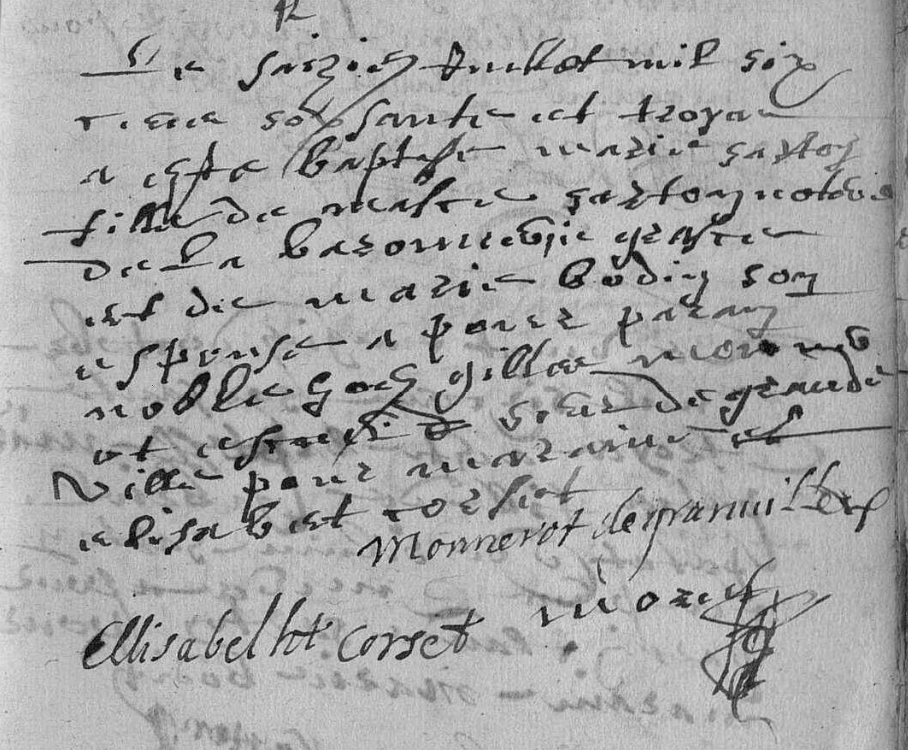 Le saiziem Juillet mil six
cens soixsante et troyes
a esté baptise marie sarton
fille de maître sarton notere
de la
et de marie bodin son
espouse a pour parain
noble gillee monnero
et sieur de grande
Ville pour maraine et
elisabet corset
Monnerot degranuille
Ellisabelht corset
Morel